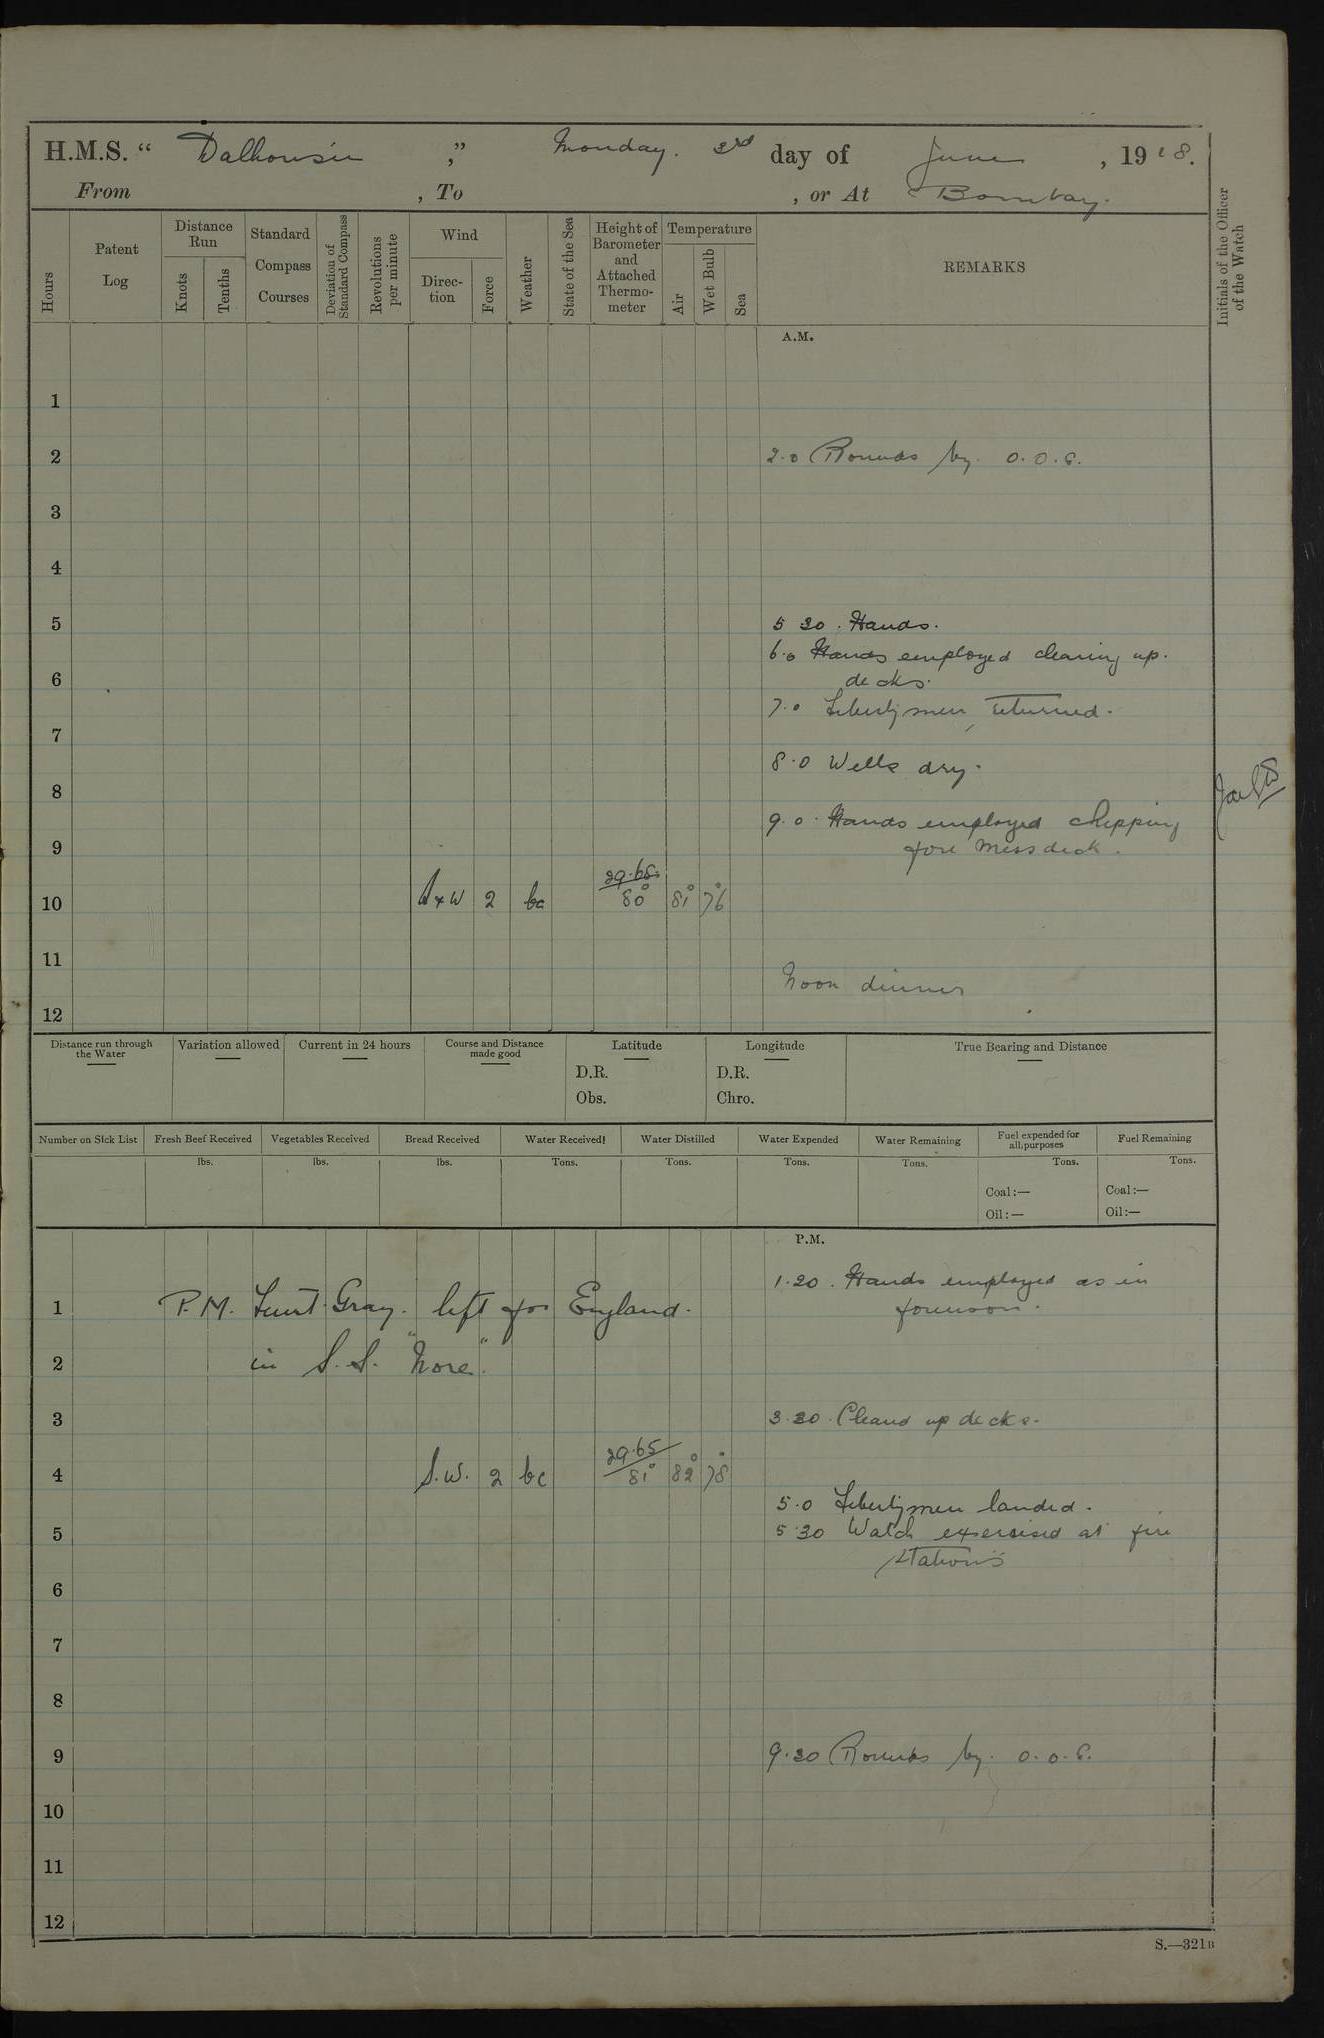 H.M.S. “ Dalhousie ,” Monday. 3rd day of June , 1918.
From , To , or At Bombay.
Hours
Patent Log
Distance Run
Knots
Tenths
Standard Compass Courses
Deviation of Standard Compass
Revolutions per minute
Wind
Direction
Force
Weather
State of the Sea
Height of Barometer and Attached Thermometer
Temperature
Air
Wet Bulb
Sea
REMARKS
Initials of the Officer of the Watch
A.M.
1
2 2.0 Rounds by. O.O.G.
3
4
5 5 30. Hands.
6.0 Hands employed clearing up.
6 decks.
7.0 Libertymen returned.
7
8.0 Wells dry.
8
9.0. Hands employed chipping
9 fore Messdeck.
29.65
10 SxW 2 bc 80° 81° 76°
11
Noon dinner
12
Distance run through the Water
Variation allowed
Current in 24 hours
Course and Distance made good
Latitude
D.R.
Obs.
Longitude
D.R.
Chro.
True Bearing and Distance
Number on Sick List
Fresh Beef Received
lbs.
Vegetables Received
lbs.
Bread Received
lbs.
Water Received
Tons.
Water Distilled
Tons.
Water Expended
Tons.
Water Remaining
Tons.
Fuel expended for all purposes
Tons.
Coal:—
Oil:—
Fuel Remaining
Tons.
Coal:—
Oil:—
P.M.
1.20. Hands employed as in
1 P.M. Lieut. Gray. left for England. forenoon.
2 in S.S. "Nore".
3 3.30. Cleand up decks.
29.65
4 S.W. 2 bc 81° 82° 78°
5.0 Libertymen landed.
5 5.30 Watch exersised at fire
stations
6
7
8
9 9.30 Rounds by. O.O.G.
10
11
12
S.—321B